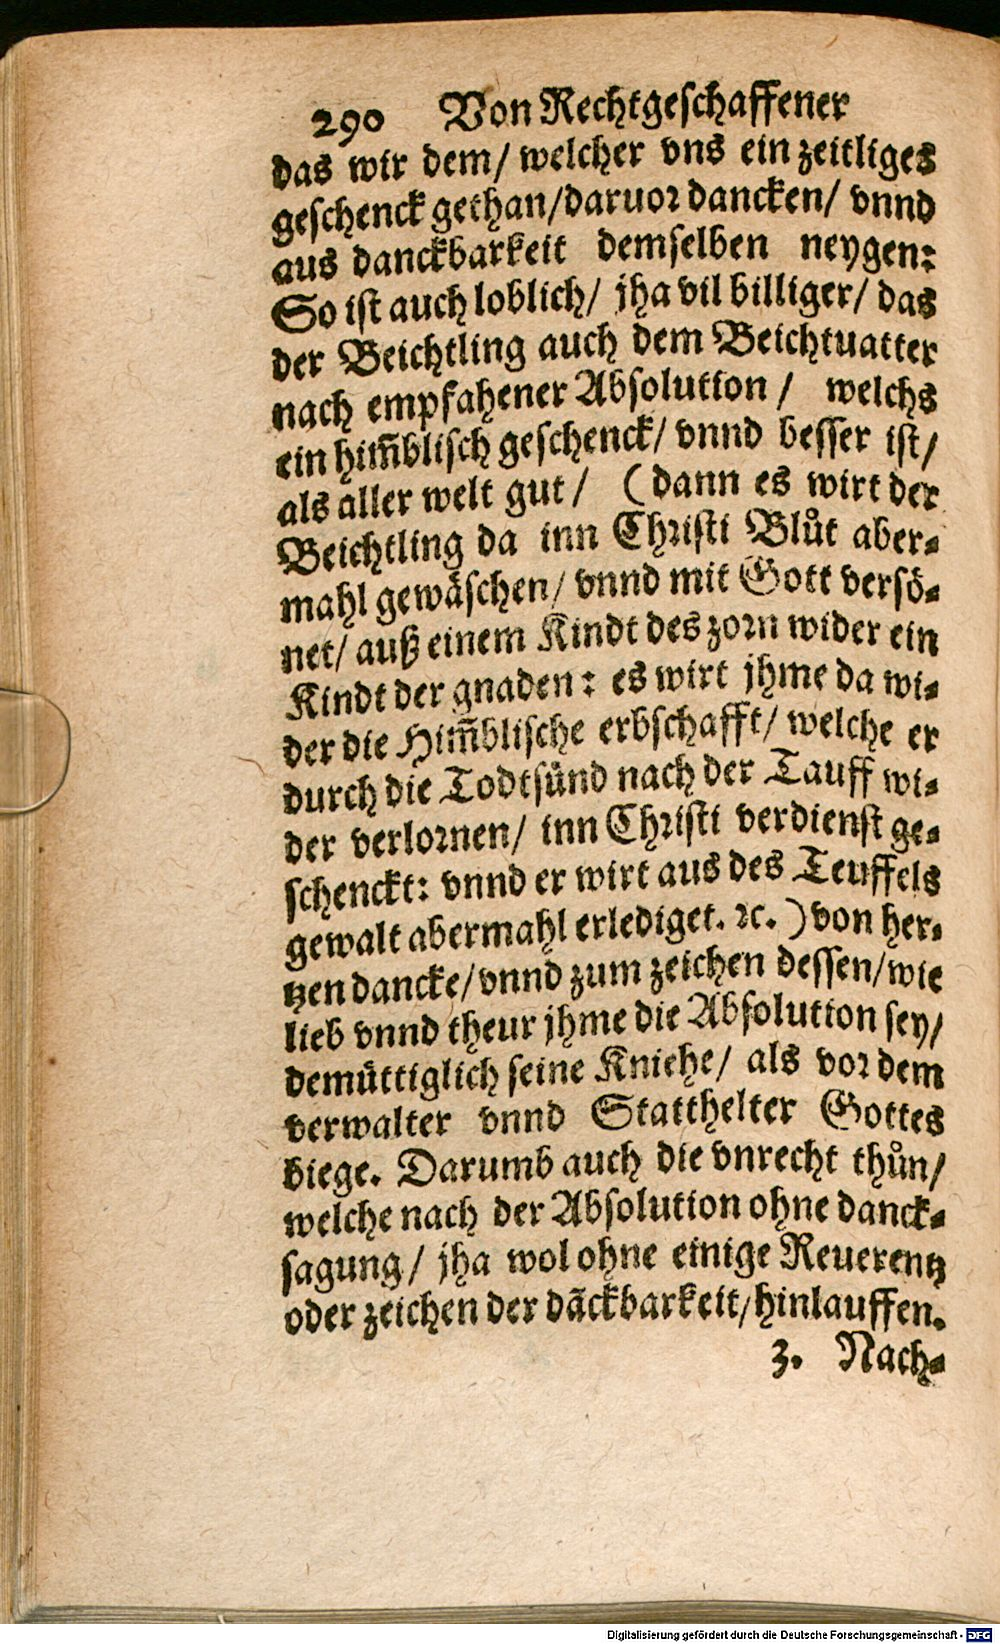 290 Von Rechtgeschaffener
das wir dem/ welcher vns ein zeitliges
geschenck gethan/daruor dancken/ vnnd
aus danckbarkeit demselben neygen:
So ist auch loblich/ jha vil billiger/ das
der Beichtling auch dem Beichtuatter
nach empfahener Absolution / welchs
ein him̃blisch geschenck/ vnnd besser ist/
als aller welt gut / (dann es wirt der
Beichtling da inn Christi Blůt aber-
mahl gewäschen/ vnnd mit Gott versö-
net/ auß einem Kindt des zorn wider ein
Kindt der gnaden: es wirt jhme da wi-
der die Him̃blische erbschafft/ welche er
durch die Todtsünd nach der Tauff wi-
der verlornen/ inn Christi verdienst ge-
schenckt: vnnd er wirt aus des Teuffels
gewalt abermahl erlediget. ꝛc.) von her-
tzen dancke/ vnnd zum zeichen dessen/wie
lieb vnnd theur jhme die Absolution sey/
demüttiglich seine Kniehe/ als vor dem
verwalter vnnd Statthelter Gottes
biege. Darumb auch die vnrecht thůn/
welche nach der Absolution ohne danck-
sagung/ jha wol ohne einige Reuerentz
oder zeichen der dãckbarkeit/hinlauffen.
3. Nach-
Digitalisierung gefördert durch die Deutsche Forschungsgemeinschaft - DFG